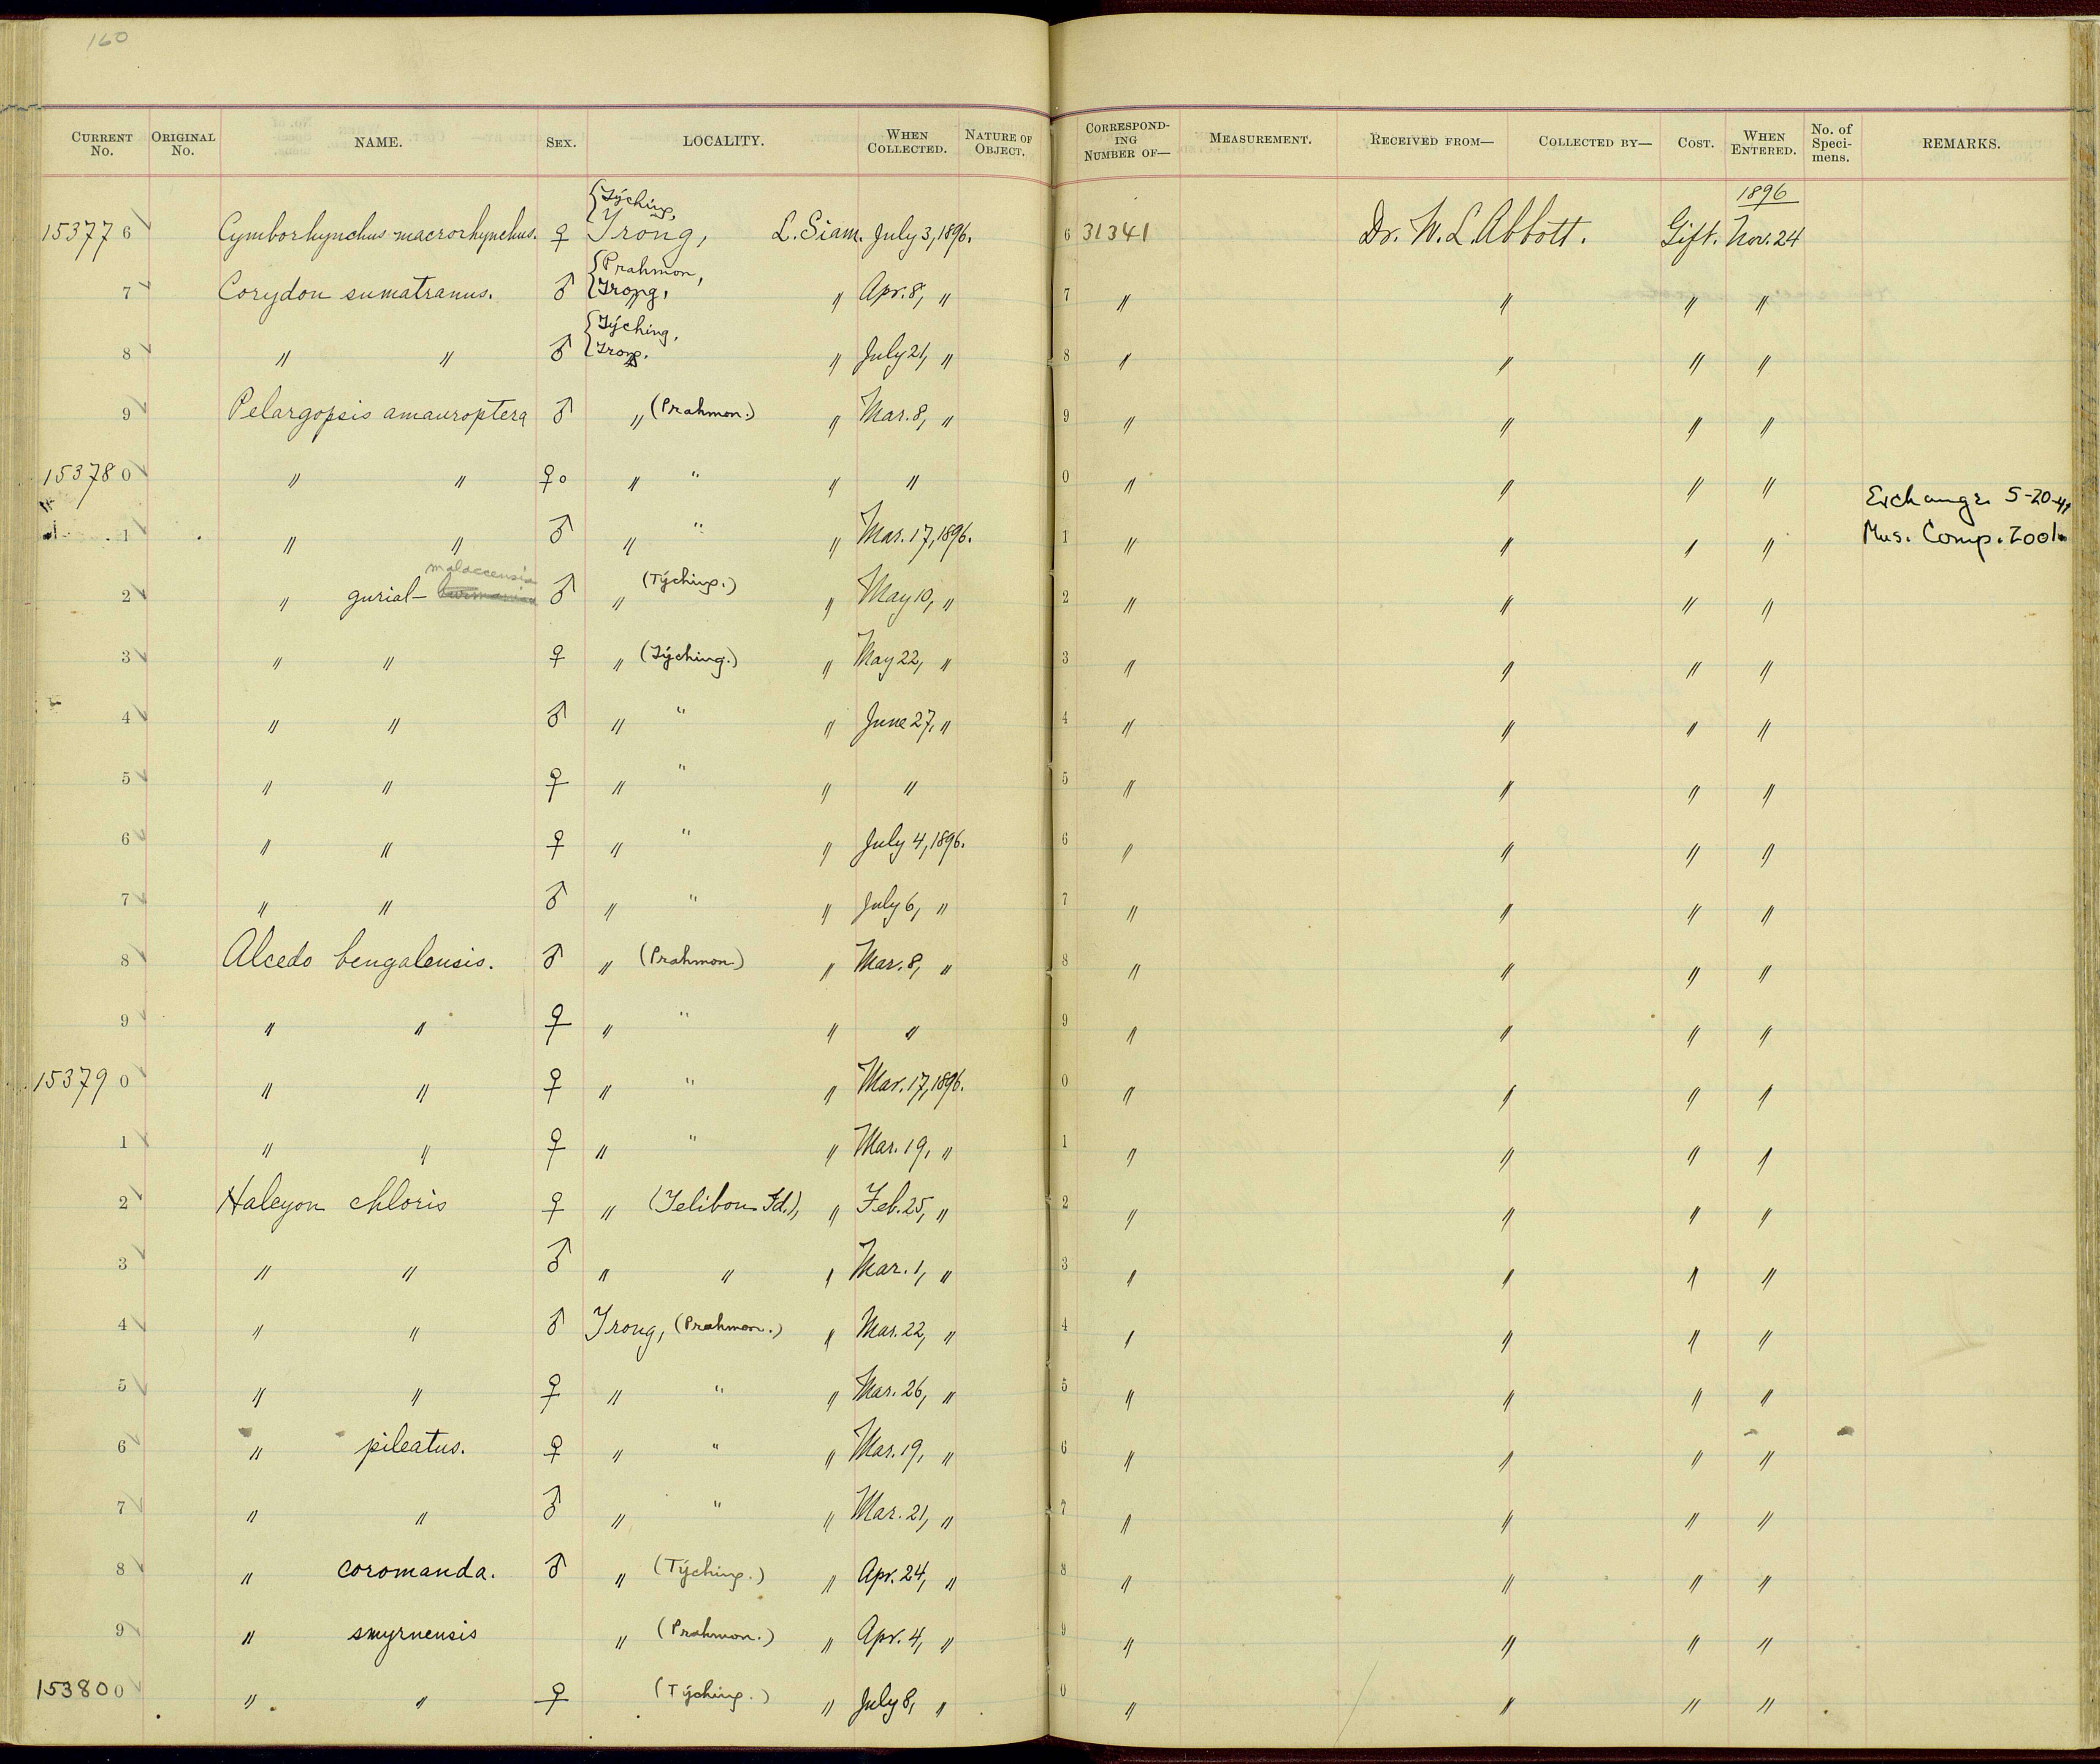 160
CURRENT No. ORIGINAL No. NAME. SEX. LOCALITY. WHEN COLLECTED. NATURE OF OBJECT. CORRESPONDING NUMBER OF— MEASUREMENT. RECEIVED FROM— COLLECTED BY— COST. WHEN ENTERED. No. of Specimens. REMARKS.
1896
153776 Cymborhynchus macrorhynchus. ♀ {Týching, Trong, L. Siam. July 3, 1896. 6 31341 Dr. W. L. Abbott. Gift. Nov. 24
7 Corydon sumatranus. ♂ {Prahmon, Trong, " Apr. 8, " 7 " " " "
8 " " ♂ {Týching, Trong. " July 21, " 8 " " " "
9 Pelargopsis amauroptera ♂ " (Prahmon.) " Mar. 8, " 9 " " " "
153780 " " ♀o " " " " 0 " " " " Exchange 5-20-41
1 " " ♂ " " " Mar. 17, 1896. 1 " " " " Mus. Comp. Zool.
2 " gurial- malaccensis ♂ " (Týching.) " May 10, " 2 " " " "
3 " " ♀ " (Týching.) " May 22, " 3 " " " "
4 " " ♂ " " " June 27, " 4 " " " "
5 " " ♀ " " " " 5 " " " "
6 " " ♀ " " " July 4, 1896. 6 " " " "
7 " " ♂ " " " July 6, " 7 " " " "
8 Alcedo bengalensis. ♂ " (Prahmon) " Mar. 8, " 8 " " " "
9 " " ♀ " " " " 9 " " " "
153790 " " ♀ " " " Mar. 17, 1896. 0 " " " "
1 " " ♀ " " " Mar. 19, " 1 " " " "
2 Halcyon chloris ♀ " (Telibon Id.), " Feb. 25, " 2 " " " "
3 " " ♂ " " " Mar. 1, " 3 " " " "
4 " " ♂ Trong, (Prahmon.) " Mar. 22, " 4 " " " "
5 " " ♀ " " " Mar. 26, " 5 " " " "
6 " pileatus. ♀ " " " Mar. 19, " 6 " " " "
7 " " ♂ " " " Mar. 21, " 7 " " " "
8 " coromanda. ♂ " (Týching.) " Apr. 24, " 8 " " " "
9 " smyrnensis " (Prahmon.) " Apr. 4, " 9 " " " "
153800 " " ♀ (Týching.) " July 8, " 0 " " " "